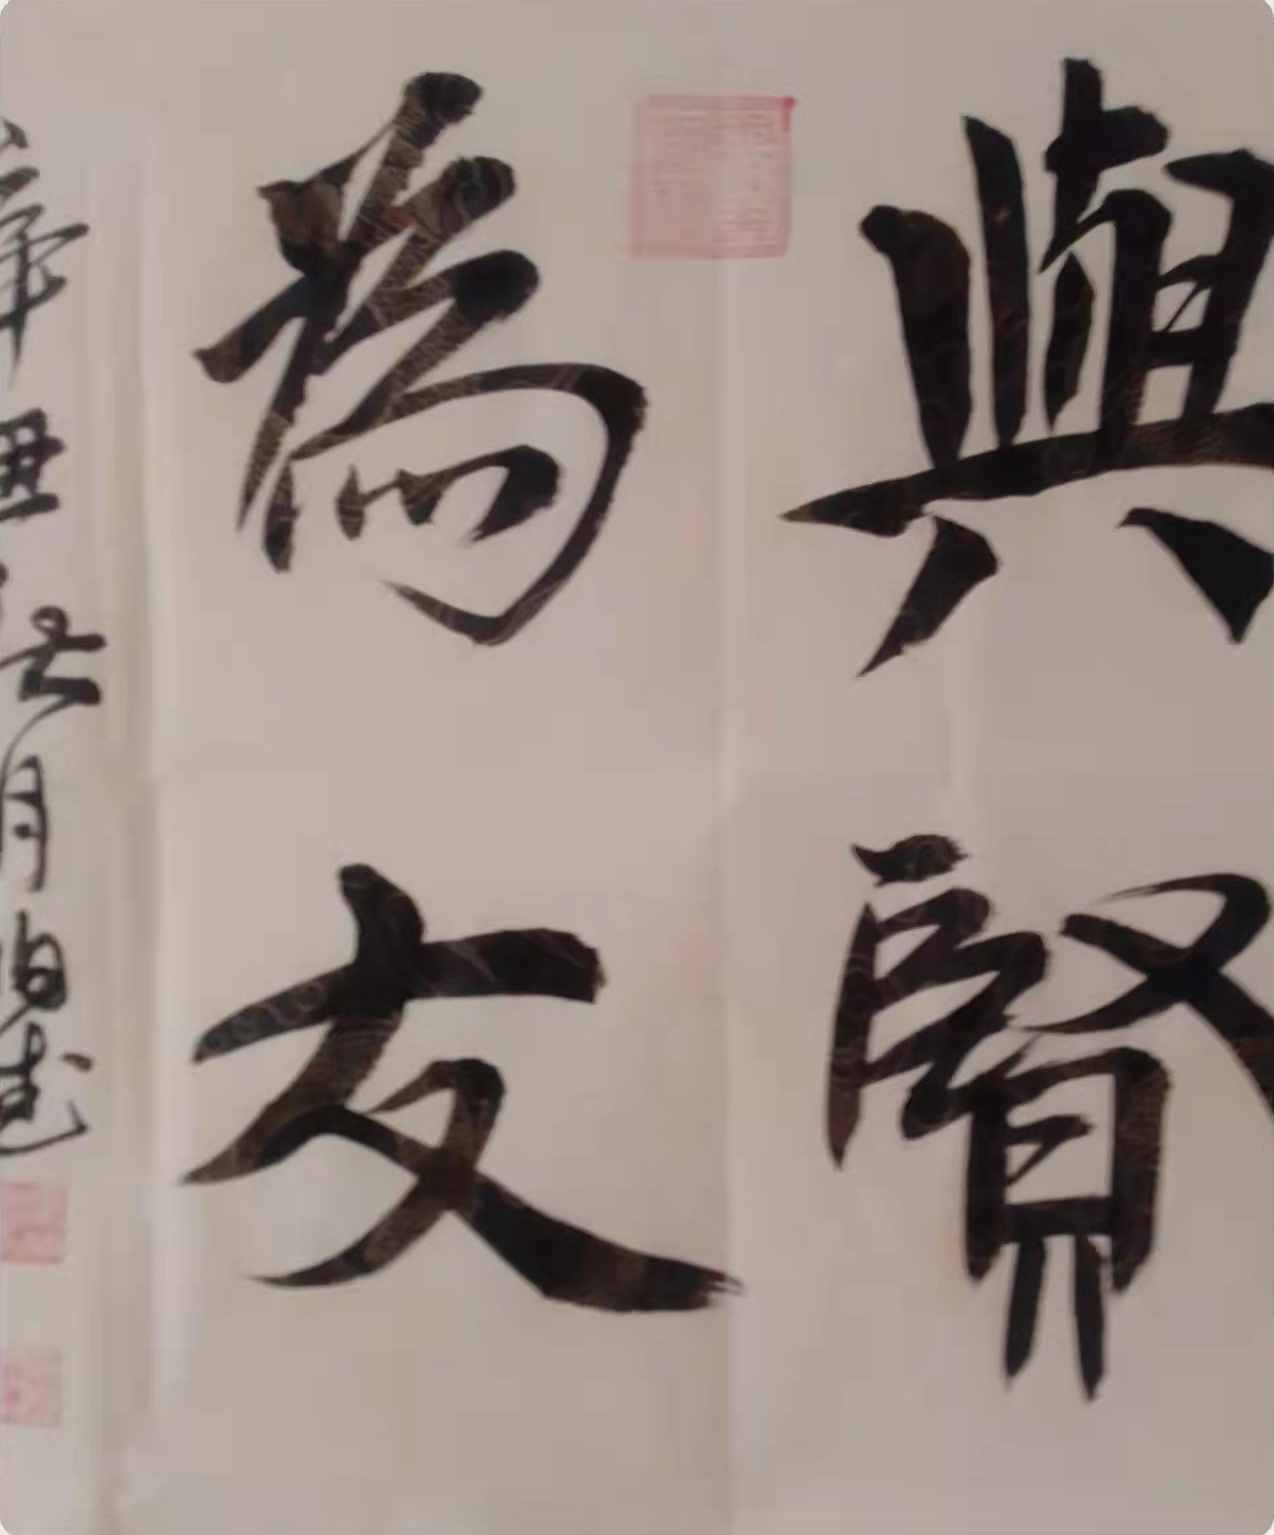 與賢
為友
辛丑 月